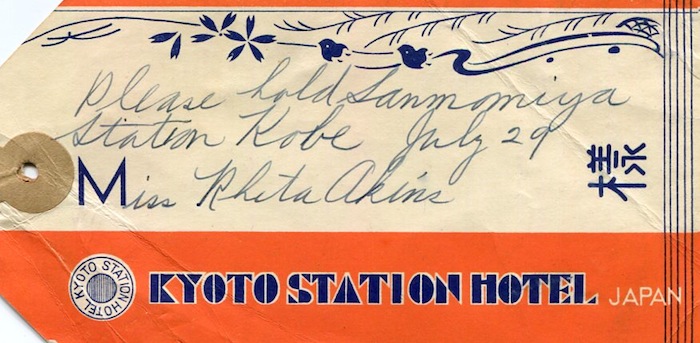 Please hold Sanmomiya
Station Kobe July 29
Miss Rheta Akins
様
KYOTO STATION HOTEL
KYOTO STATION HOTEL JAPAN